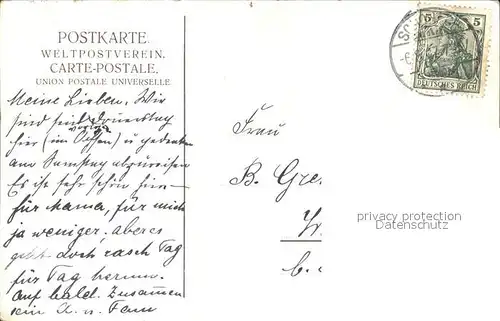 POSTKARTE
WELTPOSTVEREIN.
CARTE-POSTALE.
UNION POSTALE UNIVERSELLE.
5 5
DEUTSCHES REICH
Meine Lieben. Wir
sind seit Donnerstag
vorig
hier (im Ochsen) u. gedenken
am Samstag abzureisen
Es ist sehr schön hier
für Mama, für mich
ja weniger, aber es
geht doch rasch Tag
für Tag herum.
Auf bald. Zusammen
Frau
B. Gre
privacy protection
Datenschutz